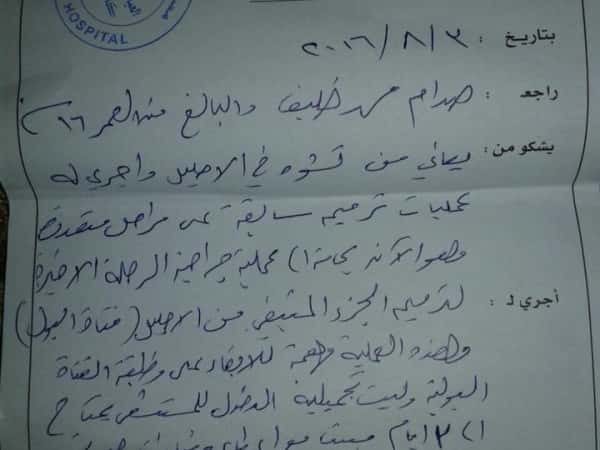 HOSPITAL
بتاريخ : ٢٠١٦/٨/٣
راجع : صدام والبالغ من العمر ١٦
يشكو من : يعاني من تشوه في الاحليل واجري له
عمليات ترميمه سابقة على مراحل متعددة
وهو الآن بحاجة الى عملية جراحية المرحلة الاخيرة
أجري لـ : لترميم الجزء المتبقي من الاحليل (قناة البول)
وهذه العملية مهمة للابقاء على وظيفة القناة
البولية وليست تجميلية الدخول للمستشفى يحتاج
الى ٣ ايام